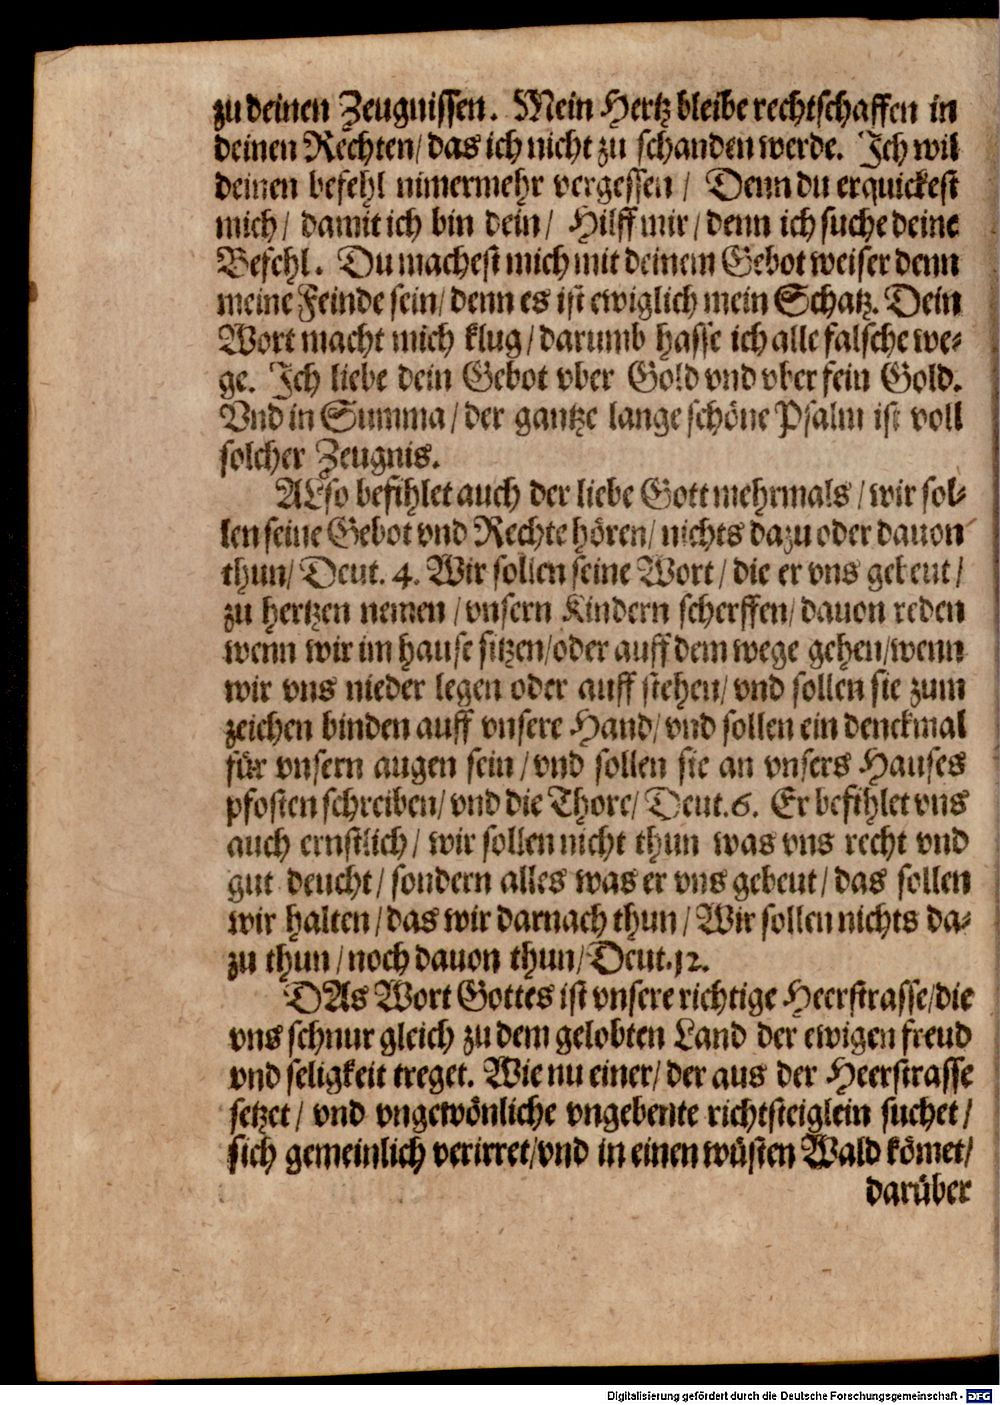 zu deinen Zeugnissen. Mein Hertz bleibe rechtschaffen in
deinen Rechten/ das ich nicht zu schanden werde. Ich wil
deinen befehl nimermehr vergessen/ Denn du erquickest
mich/ damit ich bin dein/ Hilff mir/ denn ich suche deine
Befehl. Du machest mich mit deinem Gebot weiser denn
meine Feinde sein/ denn es ist ewiglich mein Schatz. Dein
Wort macht mich klug/ darumb hasse ich alle falsche we-
ge. Ich liebe dein Gebot vber Gold vnd vber fein Gold.
Vnd in Summa/ der gantze lange schöne Psalm ist voll
solcher Zeugnis.
ALso befihlet auch der liebe Gott mehrmals/ wir sol-
len seine Gebot vnd Rechte hören/ nichts dazu oder dauon
thun/ Deut. 4. Wir sollen seine Wort/ die er vns gebeut/
zu hertzen nemen/ vnsern Kindern scherffen/ dauon reden
wenn wir im hause sitzen/ oder auff dem wege gehen/ wenn
wir vns nieder legen oder auff stehen/ vnd sollen sie zum
zeichen binden auff vnsere Hand/ vnd sollen ein denckmal
für vnsern augen sein/ vnd sollen sie an vnsers Hauses
pfosten schreiben/ vnd die Thore/ Deut. 6. Er befihlet vns
auch ernstlich/ wir sollen nicht thun was vns recht vnd
gut deucht/ sondern alles was er vns gebeut/ das sollen
wir halten/ das wir darnach thun/ Wir sollen nichts da-
zu thun/ noch dauon thun/ Deut. 12.
DAs Wort Gottes ist vnsere richtige Heerstrasse/ die
vns schnur gleich zu dem gelobten Land der ewigen freud
vnd seligkeit treget. Wie nu einer/ der aus der Heerstrasse
setzet/ vnd vngewönliche vngebente richtsteiglein suchet/
sich gemeinlich verirret/ vnd in einen wüsten Wald kömet/
darüber
Digitalisierung gefördert durch die Deutsche Forschungsgemeinschaft - DFG